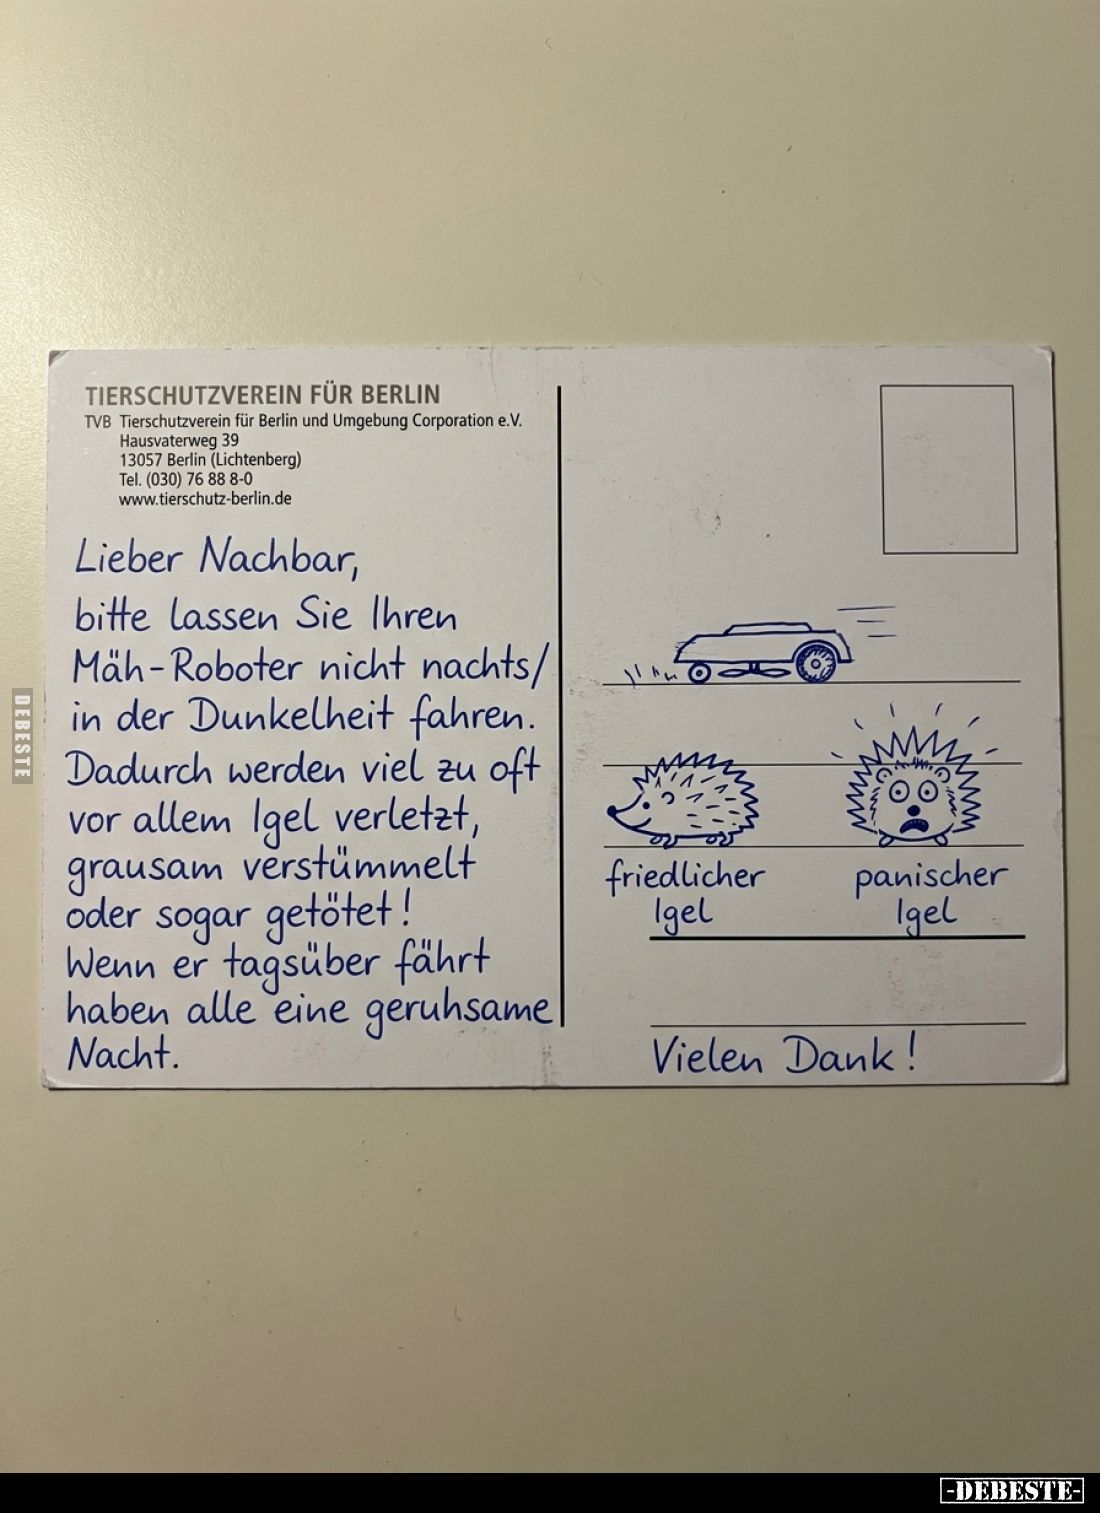 TIERSCHUTZVEREIN FÜR BERLIN
TVB Tierschutzverein für Berlin und Umgebung Corporation e.V.
Hausvaterweg 39
13057 Berlin (Lichtenberg)
Tel. (030) 76 88 8-0
www.tierschutz-berlin.de
Lieber Nachbar,
bitte lassen Sie Ihren
Mäh-Roboter nicht nachts/
in der Dunkelheit fahren.
Dadurch werden viel zu oft
vor allem Igel verletzt,
grausam verstümmelt
oder sogar getötet!
Wenn er tagsüber fährt
haben alle eine geruhsame
Nacht.
friedlicher
Igel
panischer
Igel
Vielen Dank!
DEBESTE
-DEBESTE-